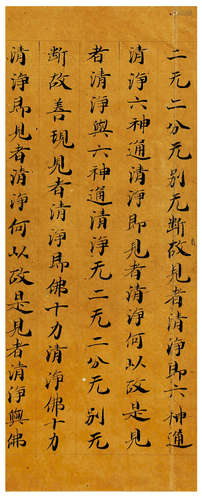 二无二分无别无断故見者清淨即六神通
清淨六神通清淨即見者清淨何以故是見
者清淨與六神通清淨无二无二分无別无
断故善現見者清淨即佛十力清淨佛十力
清淨即見者清淨何以故是見者清淨與佛